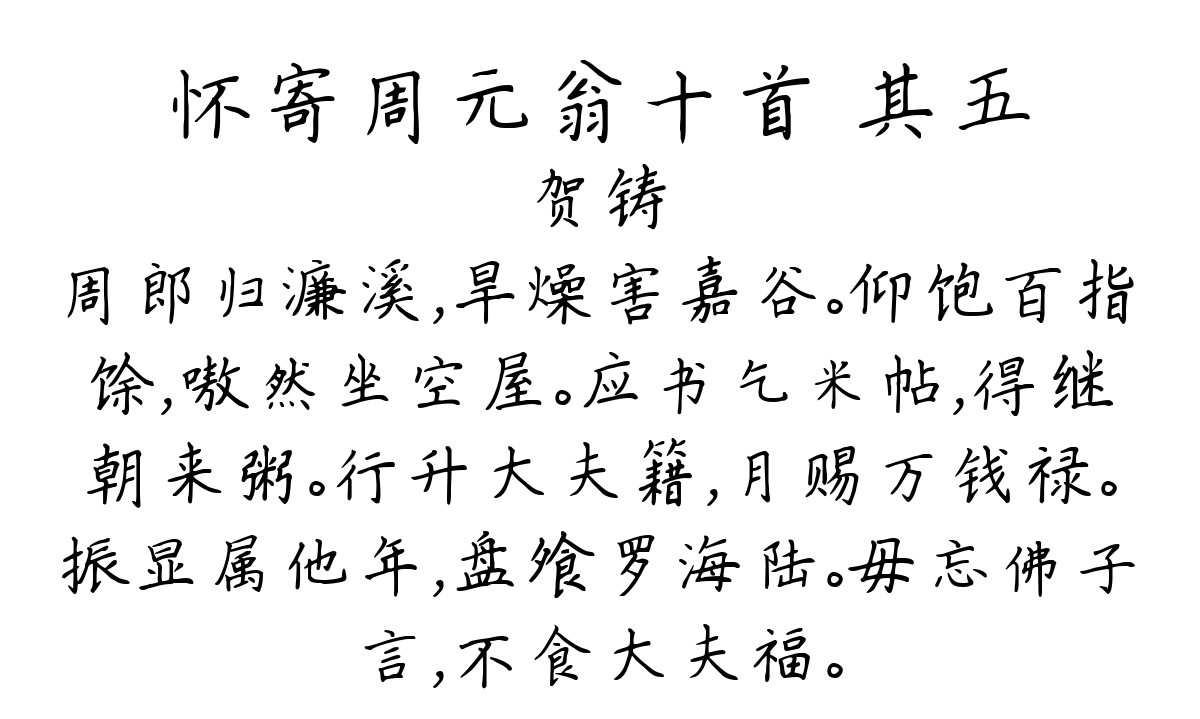 怀寄周元翁十首 其五
贺铸
周郎归濂溪,旱燥害嘉谷。仰饱百指
馀,嗷然坐空屋。应书乞米帖,得继
朝来粥。行升大夫籍,月赐万钱禄。
振显属他年,盘飧罗海陆。毋忘佛子
言,不食大夫福。